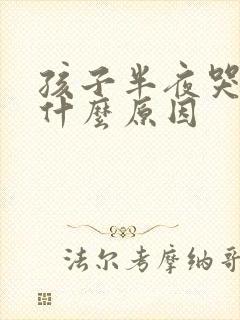 孩子半夜哭
什麼原因
法尔考摩纳哥